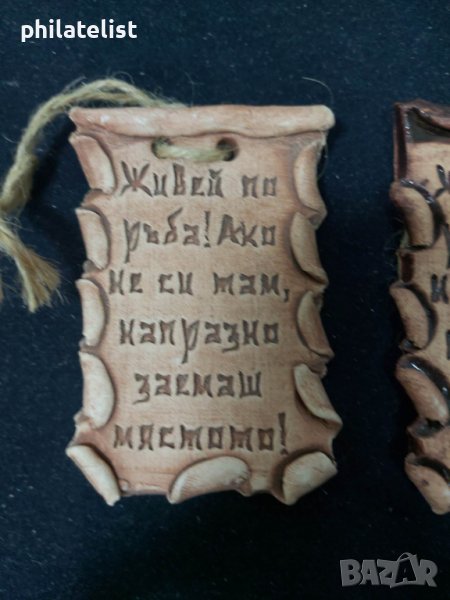 philatelist
Живей по
ръба! Ако
не си там,
напразно
заемаш
мястото!
BAZAR